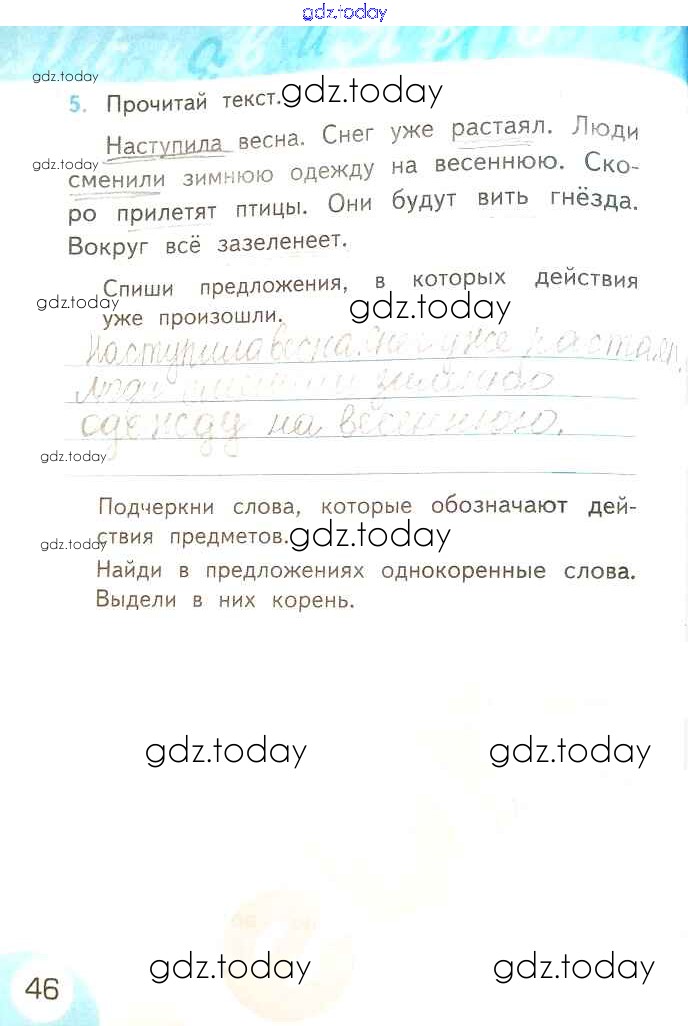 gdz.today
gdz.today
5. Прочитай текст. gdz.today
Наступила весна. Снег уже растаял. Люди
gdz.today
сменили зимнюю одежду на весеннюю. Ско-
ро прилетят птицы. Они будут вить гнёзда.
Вокруг всё зазеленеет.
Спиши предложения, в которых действия
gdz.today
уже произошли. gdz.today
Наступила весна. Снег уже растаял.
Люди сменили зимнюю
одежду на весеннюю.
gdz.today
Подчеркни слова, которые обозначают дей-
gdz.today
ствия предметов. gdz.today
Найди в предложениях однокоренные слова.
Выдели в них корень.
gdz.today gdz.today
gdz.today gdz.today
46